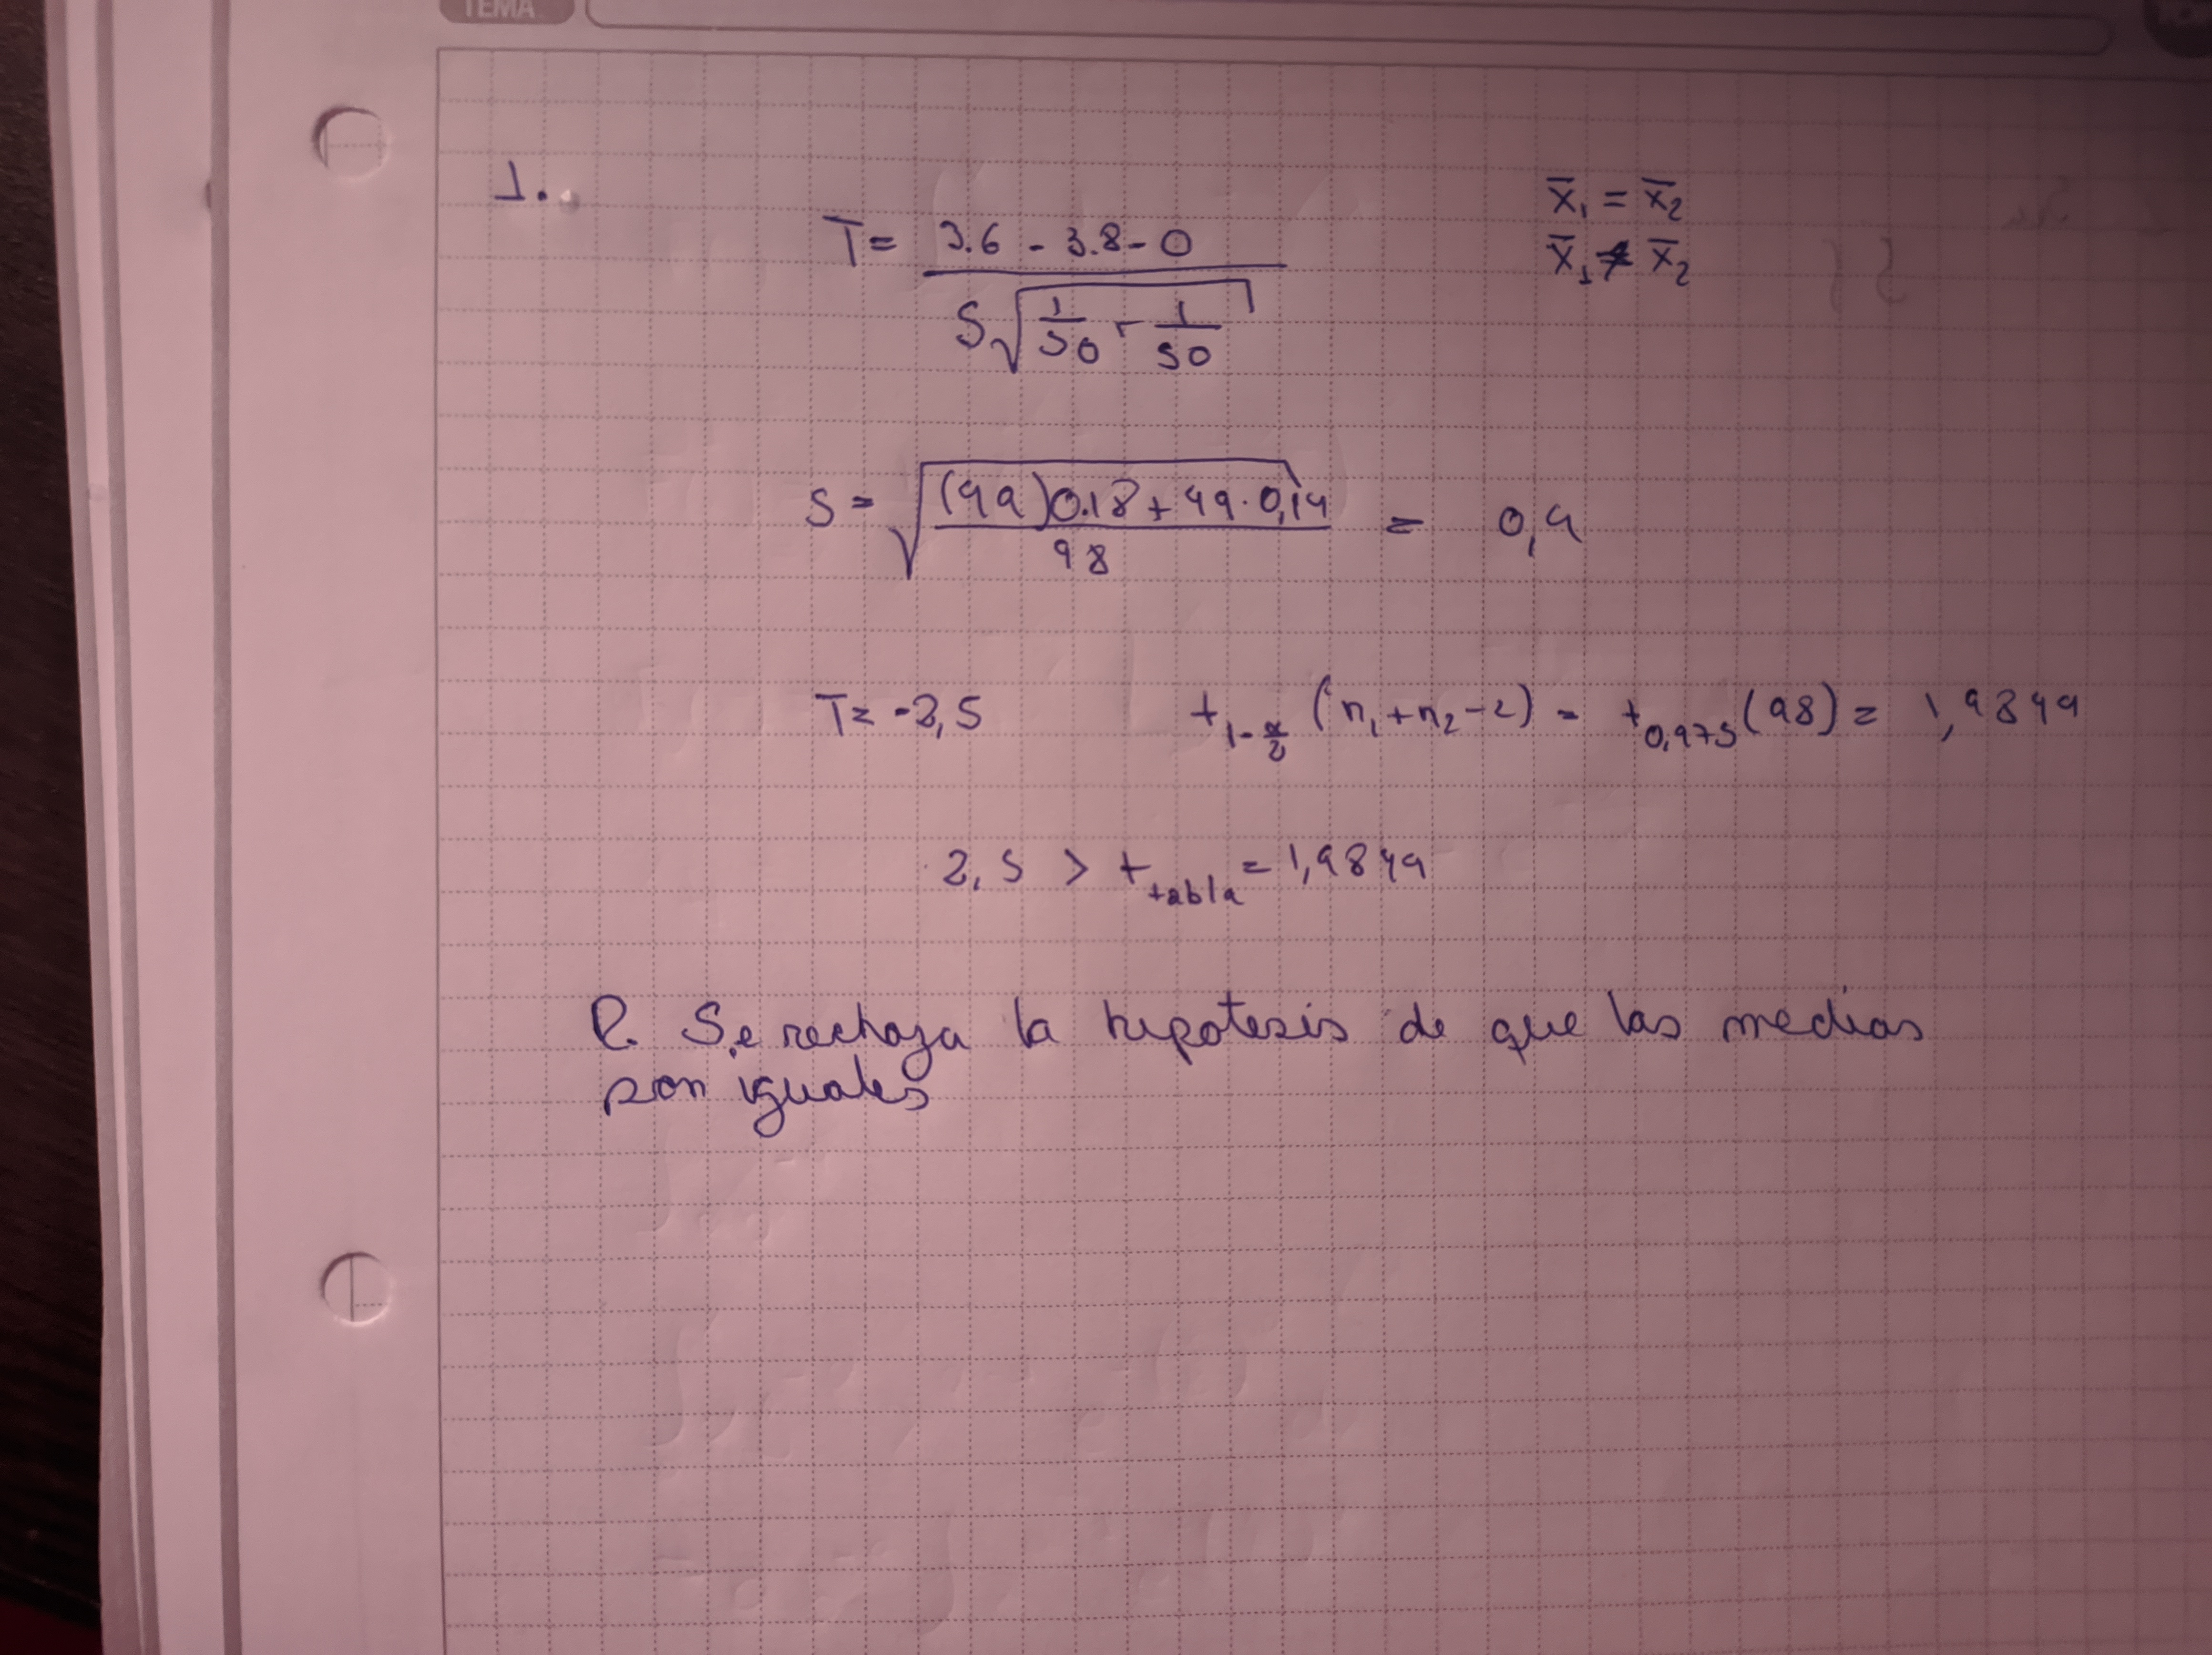 TEMA
1.
T = 3.6 - 3.8 - 0 / S √(1/50 + 1/50)
x̄₁ = x̄₂
x̄₁ ≠ x̄₂
S = √((49)0.18 + 49·0,14 / 98) = 0,4
T = -2,5 t₁₋α/₂ (n₁+n₂-2) = t₀,₉₇₅(98) = 1,9849
2,5 > t tabla = 1,9849
R. Se rechaza la hipotesis de que las medias
son iguales